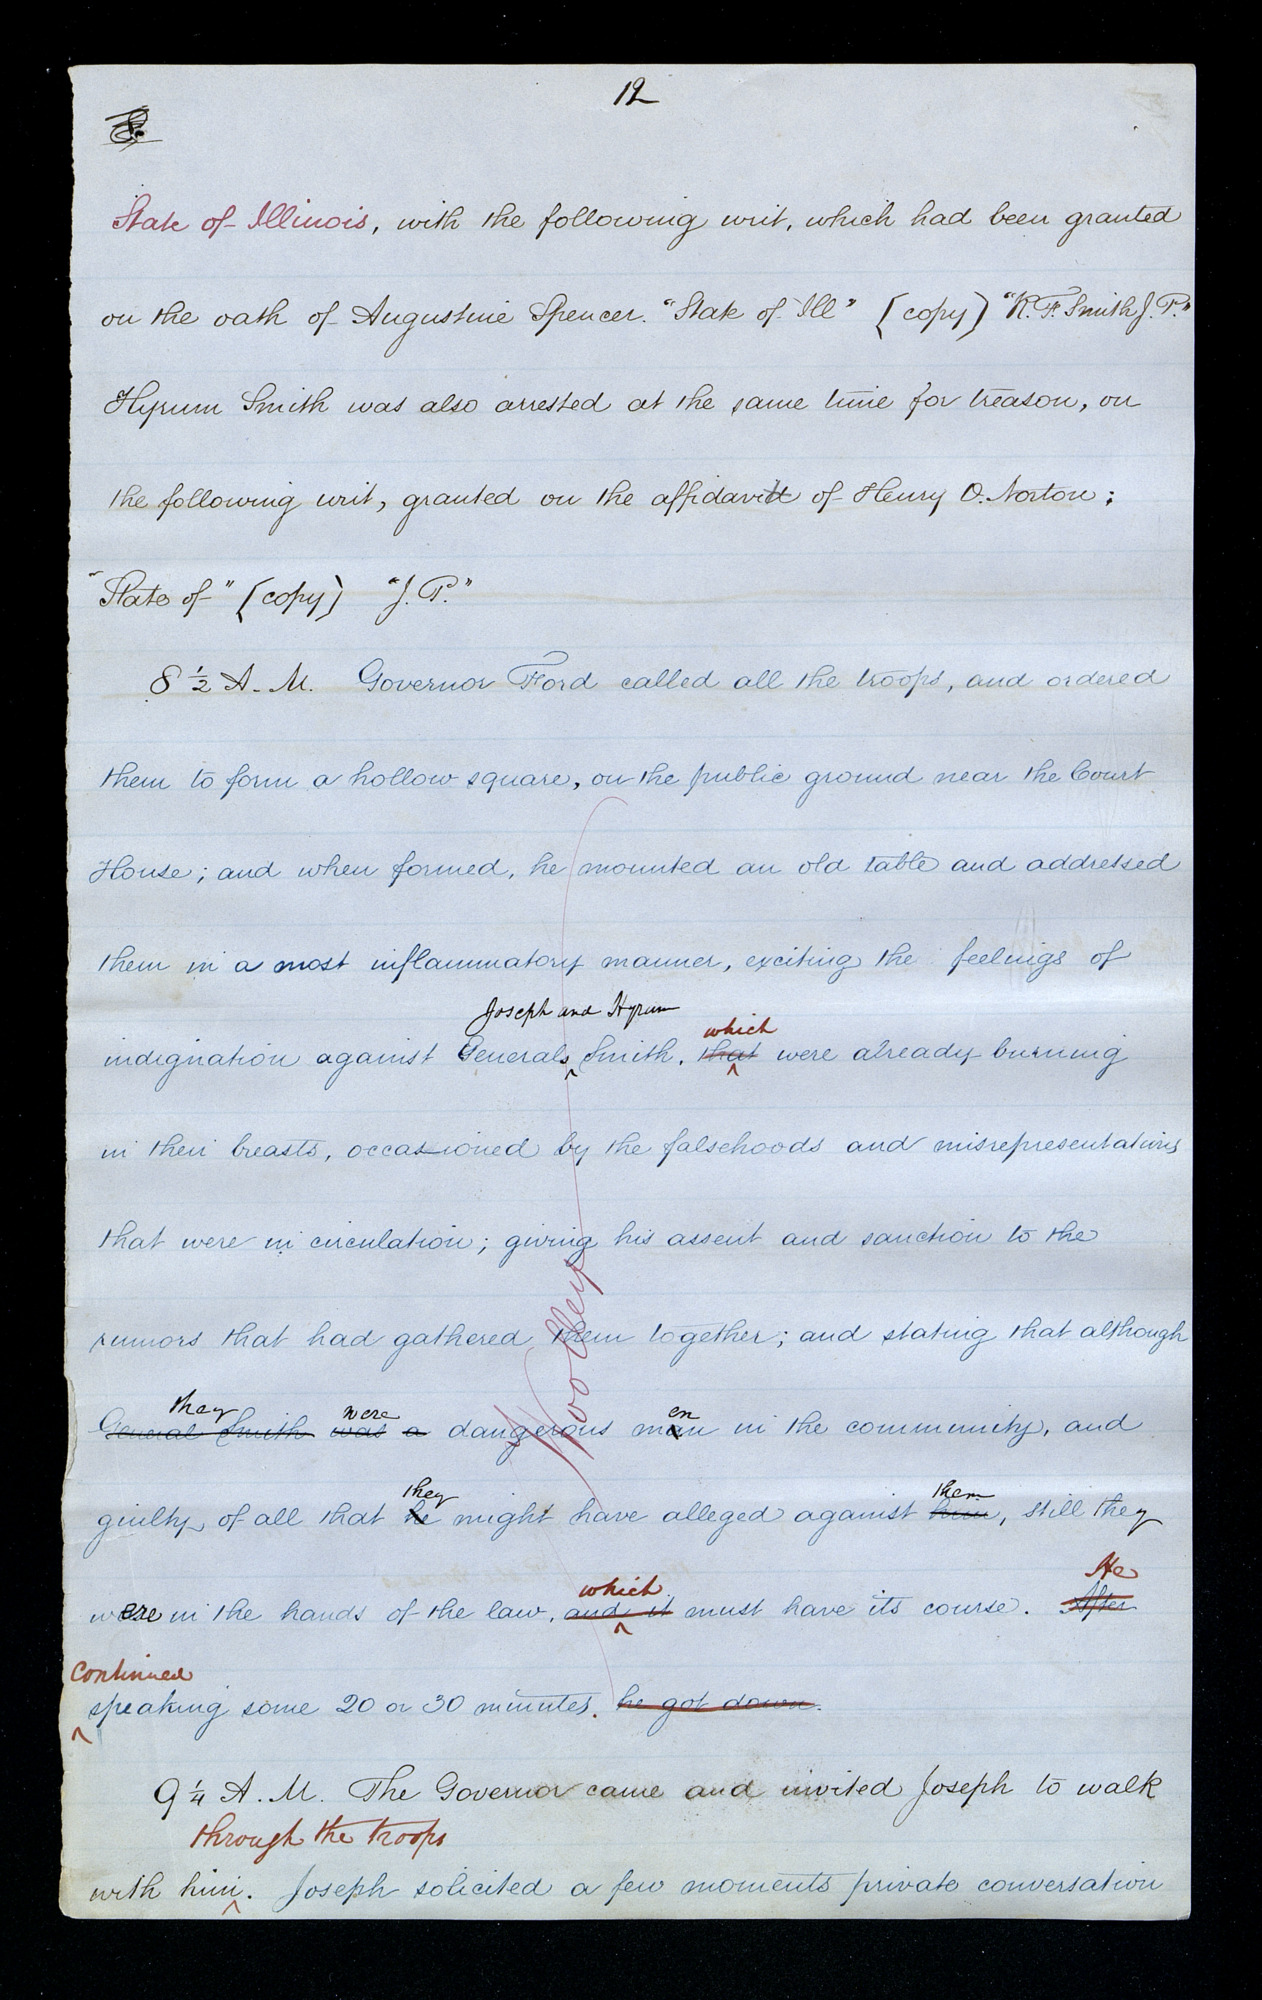 12
State of Illinois, with the following writ, which had been granted
on the oath of Augustine Spencer. "State of Ill" [copy] "R. F. Smith J. P."
Hyrum Smith was also arrested at the same time for treason, on
the following writ, granted on the affidavit of Henry O. Norton;
"State of" [copy] "J. P."
8 1/2 A. M. Governor Ford called all the troops, and ordered
them to form a hollow square, on the public ground near the Court
House; and when formed, he mounted an old table and addressed
them in a most inflammatory manner, exciting the feelings of
Joseph and Hyrum which
indignation against Generals ^ Smith, that ^ were already burning
in their breasts, occasioned by the falsehoods and misrepresentations
that were in circulation; giving his assent and sanction to the
rumors that had gathered them together; and stating that although
they were en
General Smith was a dangerous man in the community, and
they them
guilty of all that he might have alleged against him, still they
which He
were in the hands of the law, and it ^ must have its course. After
continued
^ speaking some 20 or 30 minutes. he got down.
9 1/4 A. M. The Governor came and invited Joseph to walk
through the troops
with him ^. Joseph solicited a few moments private conversation
Woolley